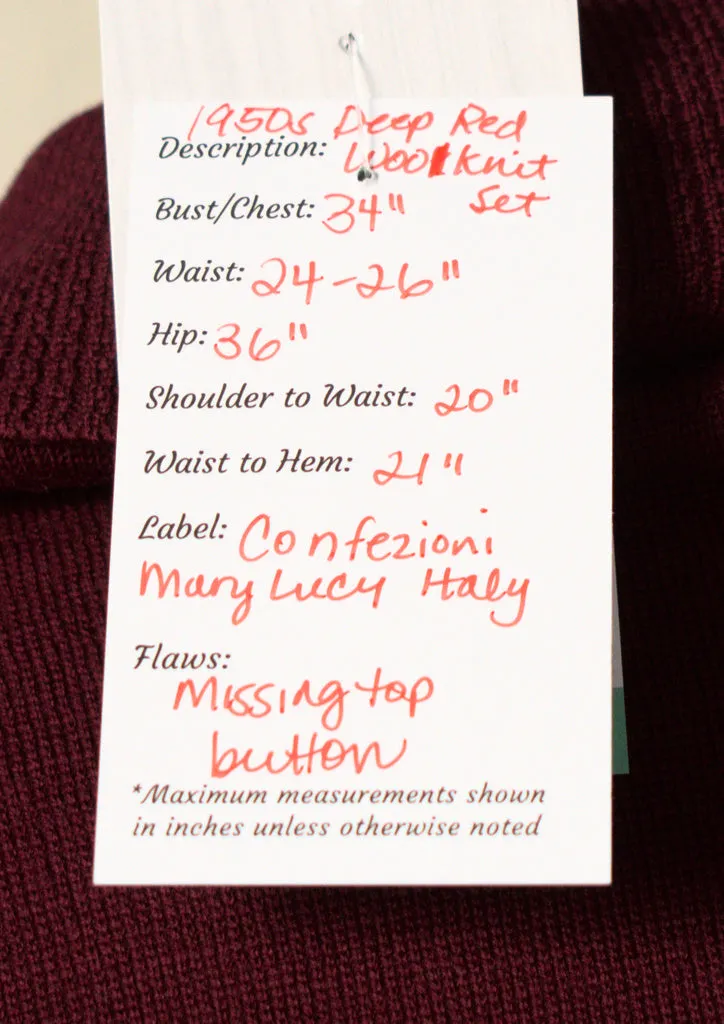 1950s Deep Red
Description: Wool knit
Bust/Chest: 34" Set
Waist: 24-26"
Hip: 36"
Shoulder to Waist: 20"
Waist to Hem: 21"
Label: Confezioni
Mary Lucy Italy
Flaws:
Missing top
button
*Maximum measurements shown
in inches unless otherwise noted